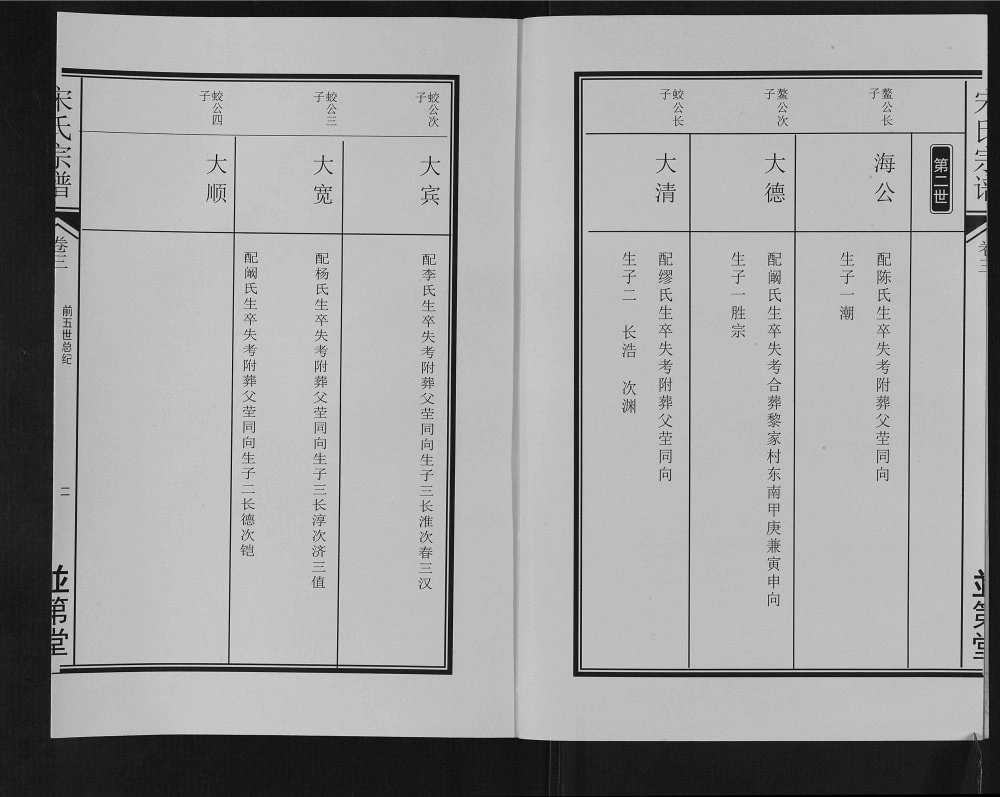 宋氏宗谱
卷三
並第堂
第二世
鳌公长
子
海公
配陈氏生卒失考附葬父茔同向
生子一潮
鳌公次
子
大德
配阚氏生卒失考合葬黎家村东南甲庚兼寅申向
生子一胜宗
蛟公长
子
大清
配缪氏生卒失考附葬父茔同向
生子二 长浩 次渊
蛟公次
子
大宾
配李氏生卒失考附葬父茔同向生子三长淮次春三汉
蛟公三
子
大宽
配杨氏生卒失考附葬父茔同向生子三长淳次济三值
蛟公四
子
大顺
配阚氏生卒失考附葬父茔同向生子二长德次铠
宋氏宗谱
卷三
前五世总纪
二
並第堂